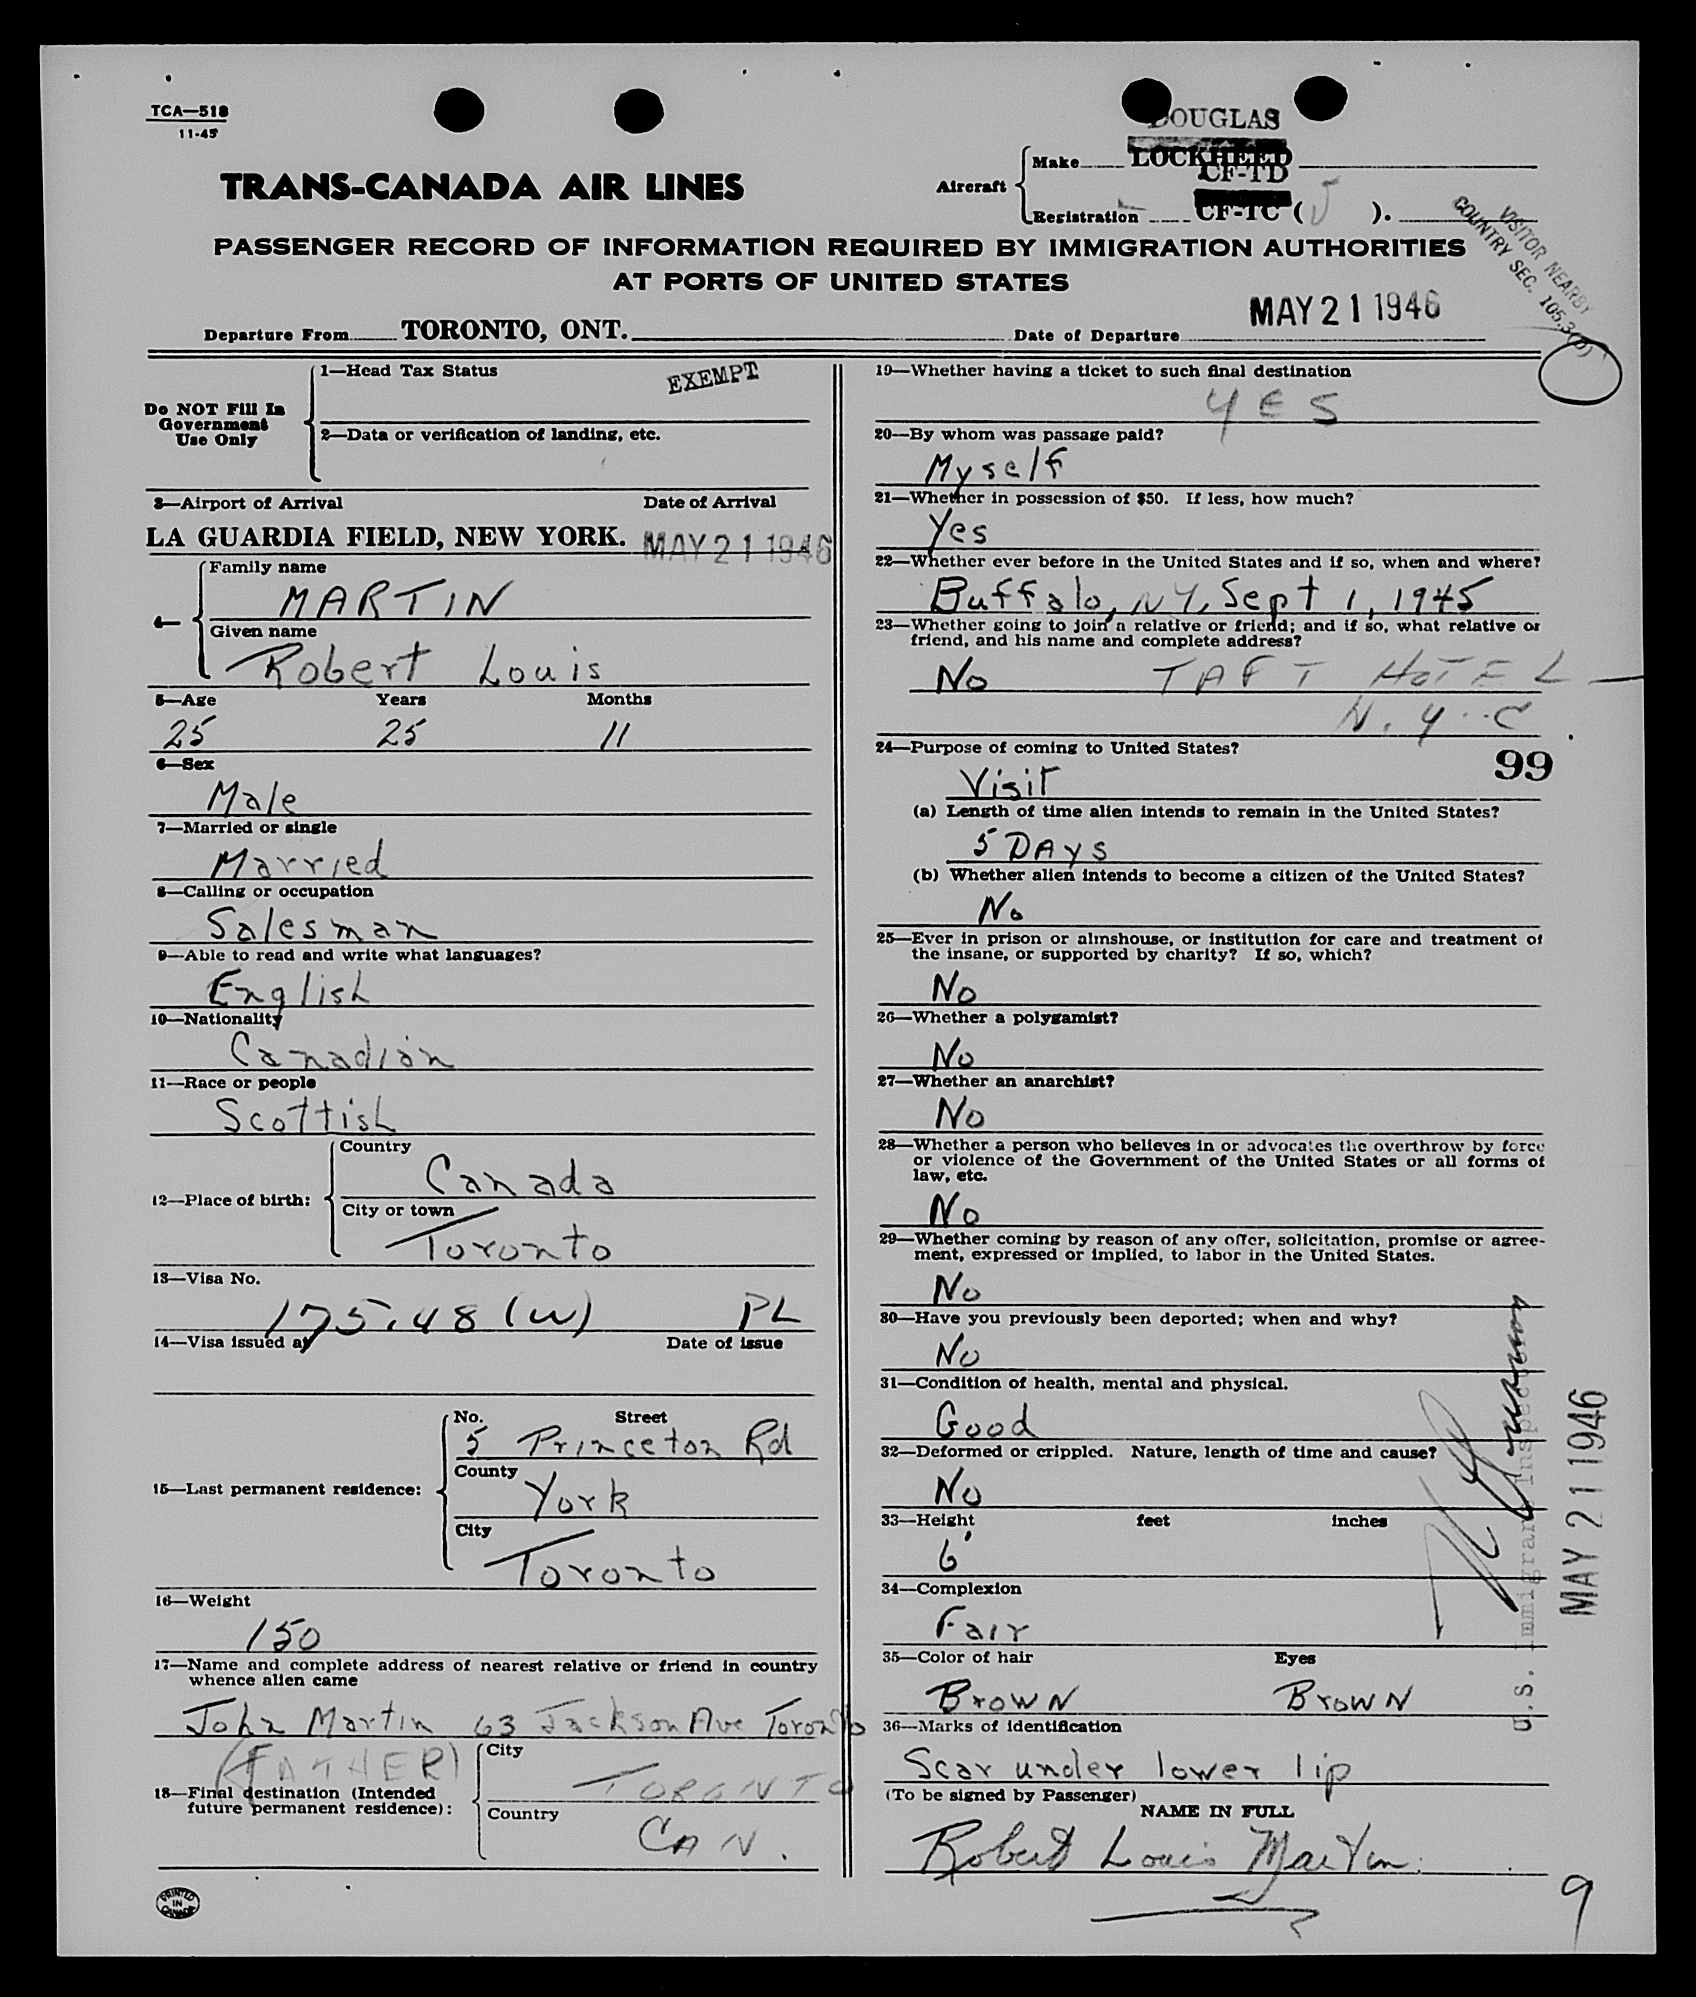 TCA—518
11-45
TRANS-CANADA AIR LINES
DOUGLAS
Aircraft
Make LOCKHEED
CF-TD
Registration CF-TC ( J ).
PASSENGER RECORD OF INFORMATION REQUIRED BY IMMIGRATION AUTHORITIES
AT PORTS OF UNITED STATES
VISITOR NEARBY
COUNTRY SEC. 105.3(D)
Departure From TORONTO, ONT. Date of Departure MAY 21 1946
Do NOT Fill In
Government
Use Only
1—Head Tax Status EXEMPT
2—Data or verification of landing, etc.
3—Airport of Arrival Date of Arrival
LA GUARDIA FIELD, NEW YORK. MAY 21 1946
4— Family name
MARTIN
Given name
Robert Louis
5—Age Years Months
25 25 11
6—Sex
Male
7—Married or single
Married
8—Calling or occupation
Salesman
9—Able to read and write what languages?
English
10—Nationality
Canadian
11—Race or people
Scottish
12—Place of birth:
Country
Canada
City or town
Toronto
13—Visa No.
175.48 (W) PL
14—Visa issued at Date of issue
15—Last permanent residence:
No. Street
5 Princeton Rd
County
York
City
Toronto
16—Weight
150
17—Name and complete address of nearest relative or friend in country
whence alien came
John Martin 63 Jackson Ave Toronto
(FATHER)
18—Final destination (Intended
future permanent residence):
City
TORONTO
Country
CAN.
PRINTED
IN
CANADA
19—Whether having a ticket to such final destination
YES
20—By whom was passage paid?
Myself
21—Whether in possession of $50. If less, how much?
Yes
22—Whether ever before in the United States and if so, when and where?
Buffalo, NY, Sept 1, 1945
23—Whether going to join a relative or friend; and if so, what relative or
friend, and his name and complete address?
No TAFT HOTEL —
N.Y.C
24—Purpose of coming to United States?
99
Visit
(a) Length of time alien intends to remain in the United States?
5 DAys
(b) Whether alien intends to become a citizen of the United States?
No
25—Ever in prison or almshouse, or institution for care and treatment of
the insane, or supported by charity? If so, which?
No
26—Whether a polygamist?
No
27—Whether an anarchist?
No
28—Whether a person who believes in or advocates the overthrow by force
or violence of the Government of the United States or all forms of
law, etc.
No
29—Whether coming by reason of any offer, solicitation, promise or agree-
ment, expressed or implied, to labor in the United States.
No
30—Have you previously been deported; when and why?
No
31—Condition of health, mental and physical.
Good
32—Deformed or crippled. Nature, length of time and cause?
No
33—Height feet inches
6'
34—Complexion
Fair
35—Color of hair Eyes
Brown Brown
36—Marks of identification
Scar under lower lip
(To be signed by Passenger)
NAME IN FULL
Robert Louis Martin
U.S. Immigrant Inspector
MAY 21 1946
9